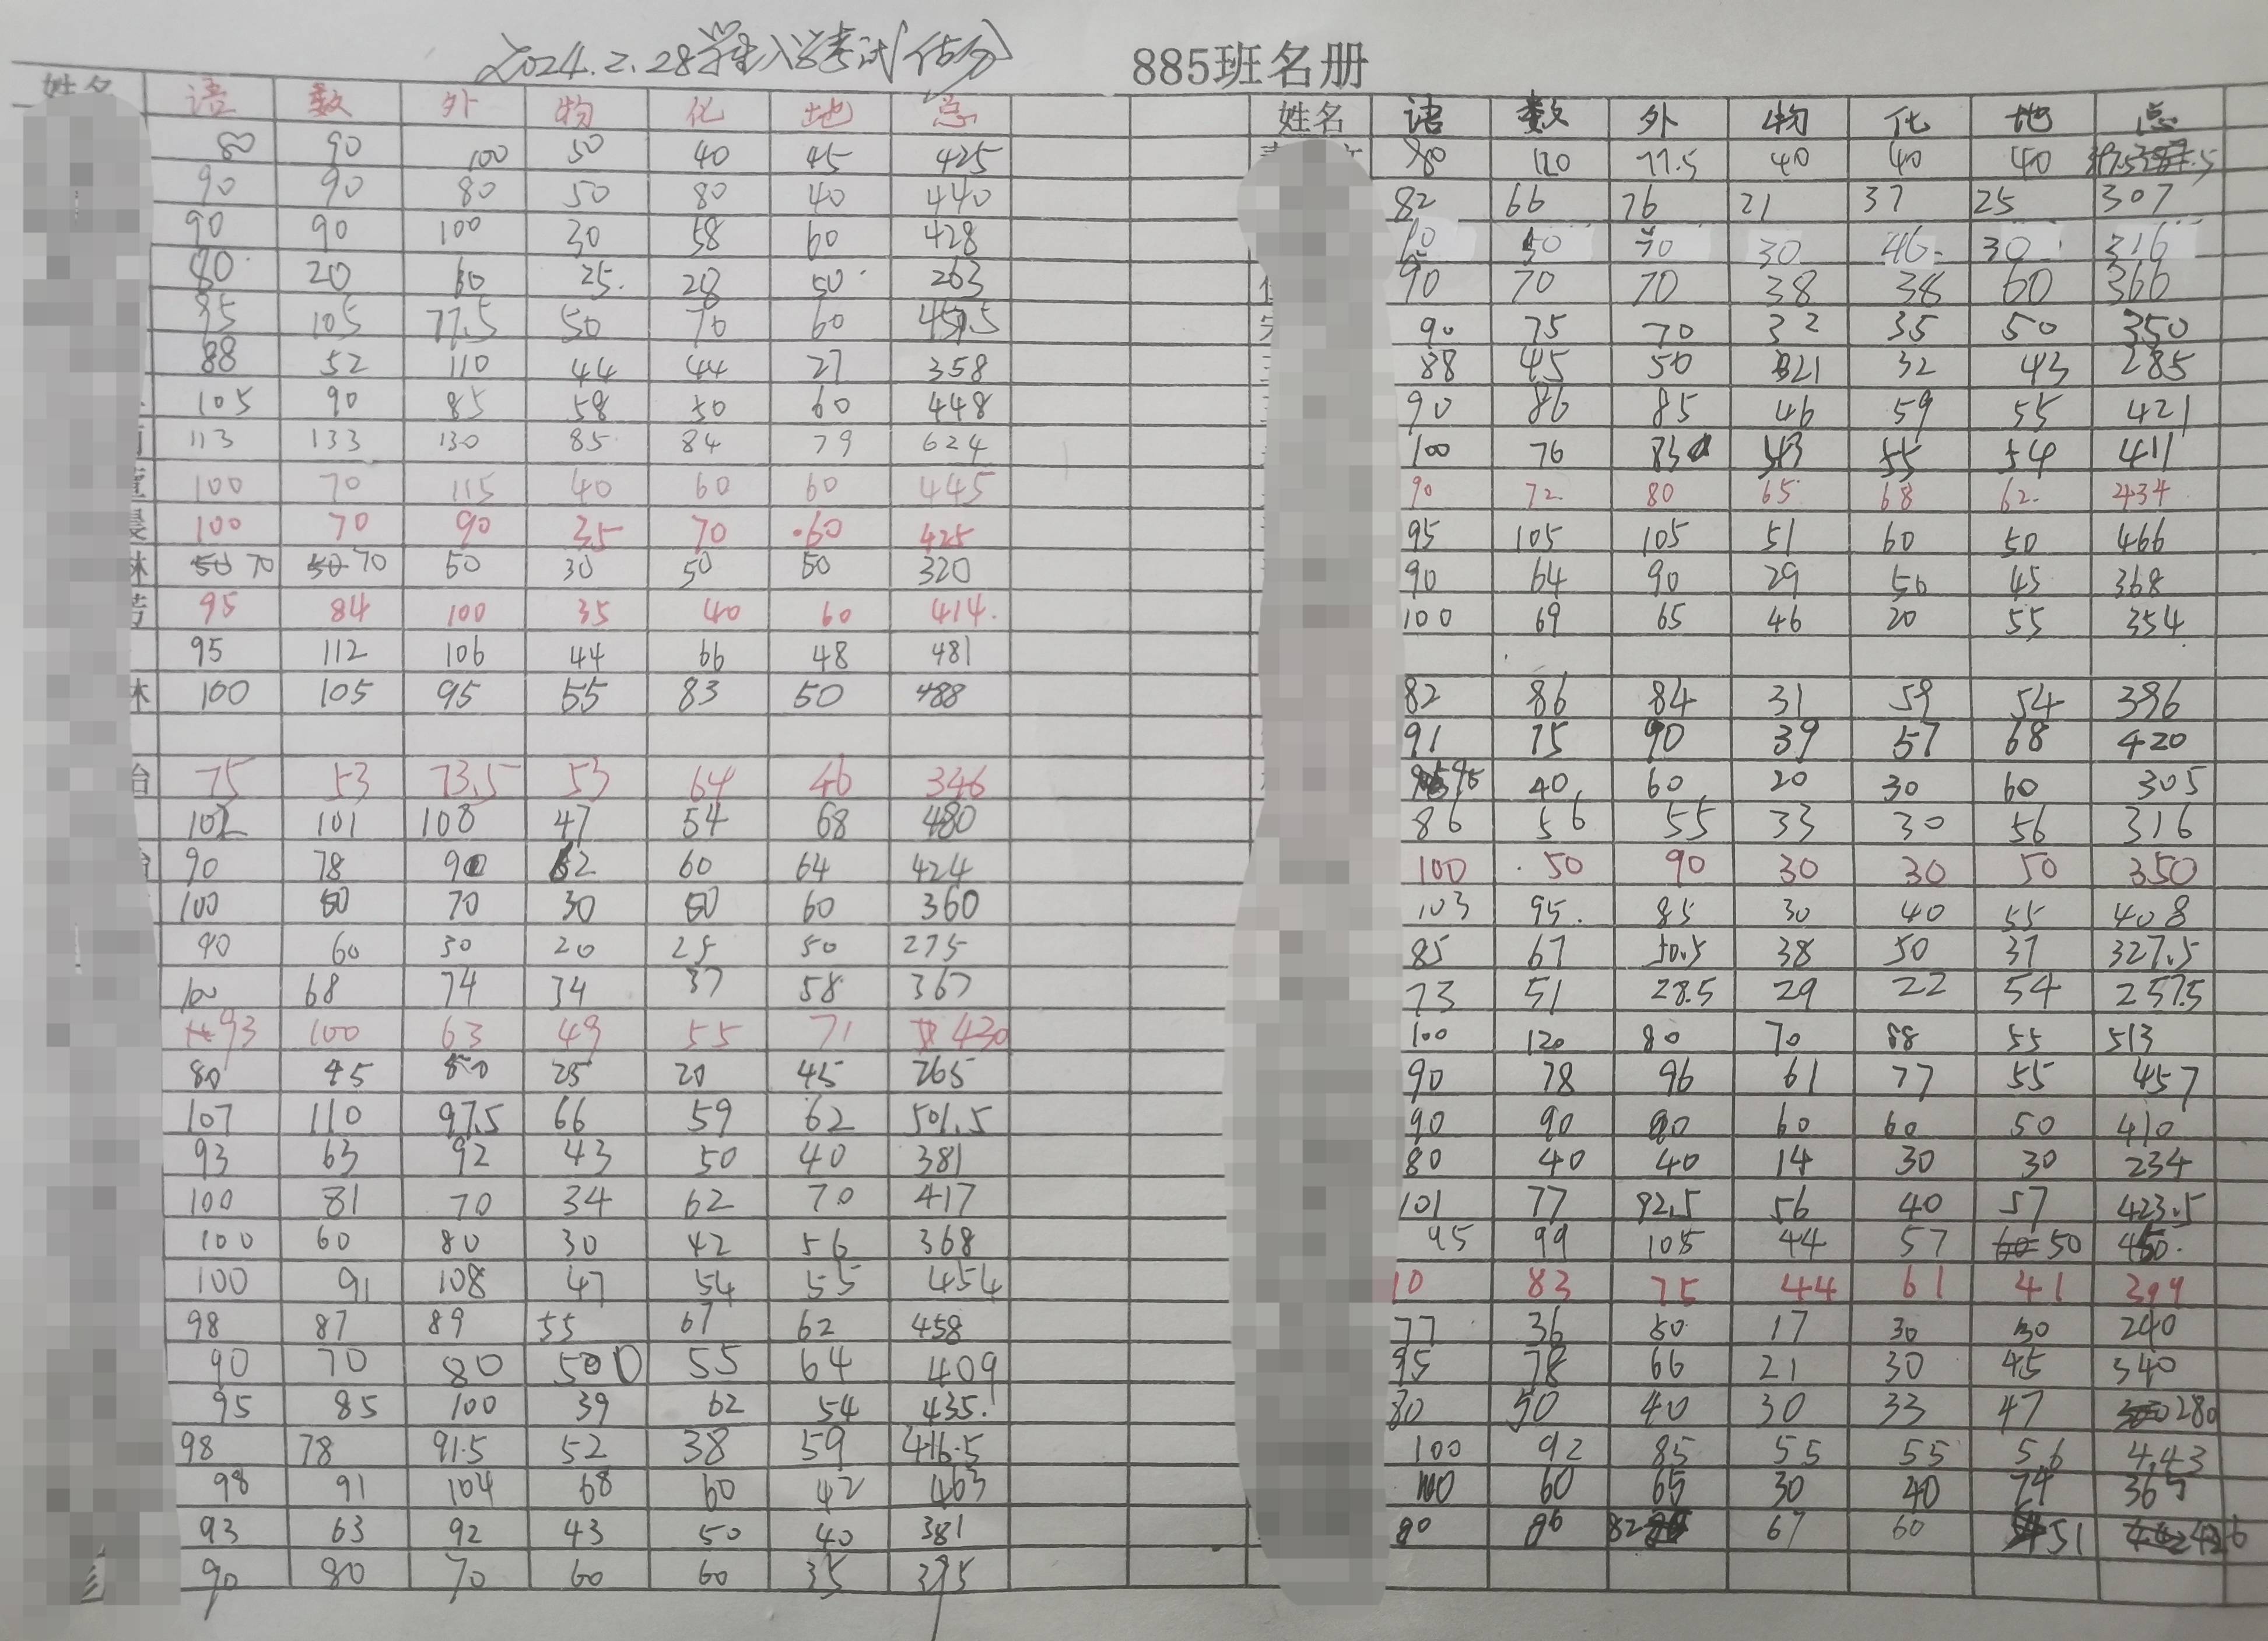 2024.2.28学生入学考试(估分)
885班名册
姓名 语 数 外 物 化 地 总
80 90 100 50 40 45 425
90 90 80 50 80 40 440
90 90 100 30 58 60 428
80 20 60 25 28 50 263
95 105 77.5 50 70 60 457.5
88 52 110 44 44 27 358
105 90 85 58 50 60 448
113 133 130 85 84 79 624
100 70 115 40 60 60 445
100 70 90 35 70 60 425
林 50 70 50 70 50 30 50 50 320
芳 95 84 100 35 40 60 414.
95 112 106 44 66 48 481
林 100 105 95 55 83 50 488
75 53 73.5 53 64 46 346
102 101 108 47 54 68 480
90 78 90 62 60 64 424
100 50 70 30 50 60 360
90 60 30 20 25 50 275
100 68 74 34 37 58 367
93 100 63 49 55 71 430
80 45 50 25 20 45 265
107 110 97.5 66 59 62 501.5
93 63 92 43 50 40 381
100 81 70 34 62 70 417
100 60 80 30 42 56 368
100 91 108 47 54 55 454
98 87 89 55 67 62 458
90 70 80 50 55 64 409
95 85 100 39 62 54 435.
98 78 91.5 52 38 59 416.5
98 91 104 68 60 42 463
93 63 92 43 50 40 381
90 80 70 60 60 35 395
姓名 语 数 外 物 化 地 总
80 120 77.5 40 40 40
82 66 76 21 37 25 307
50 30 46 30 316
90 70 70 38 38 60 366
90 75 70 32 35 50 350
88 45 50 21 32 43 285
90 86 85 46 59 55 421
100 76 83 43 55 54 411
90 72 80 65 68 62 434
95 105 105 51 60 50 466
90 64 90 29 50 45 368
100 69 65 46 20 55 354
82 86 84 31 59 54 396
91 75 90 39 57 68 420
95 40 60 20 30 60 305
86 56 55 33 30 56 316
100 50 90 30 30 50 350
103 95 85 30 40 55 408
85 67 50.5 38 50 37 327.5
73 51 28.5 29 22 54 257.5
100 120 80 70 88 55 513
90 78 96 61 77 55 457
90 90 80 60 60 50 410
80 40 40 14 30 30 234
101 77 92.5 56 40 57 423.5
95 99 105 44 57 60 50 450.
83 75 44 61 41 399
77 36 50 17 30 30 240
95 78 66 21 30 45 340
80 50 40 30 33 47 280
100 92 85 55 55 56 443
100 60 65 30 40 74 369
80 86 82 67 60 51 426